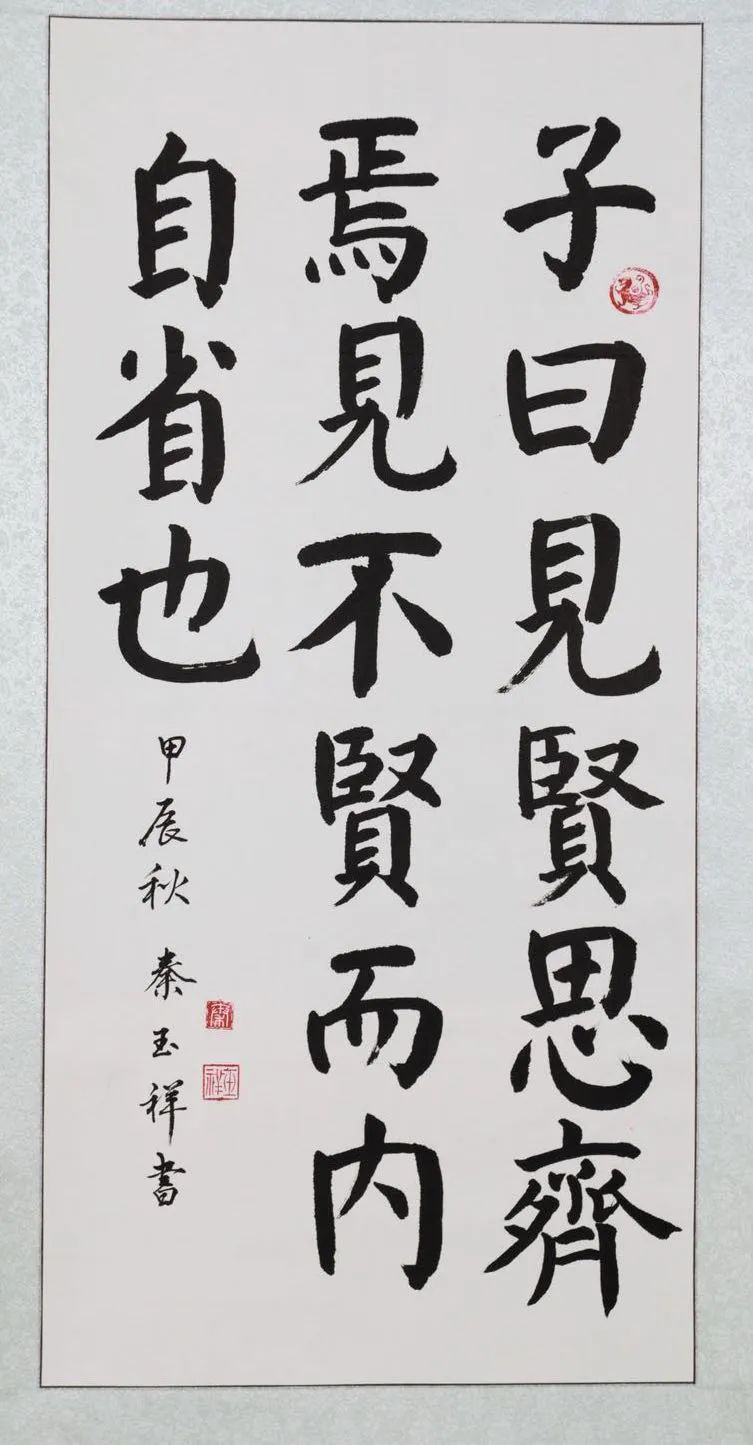 子曰見賢思齊
焉見不賢而内
自省也
甲辰秋 秦玉祥書
秦
玉祥